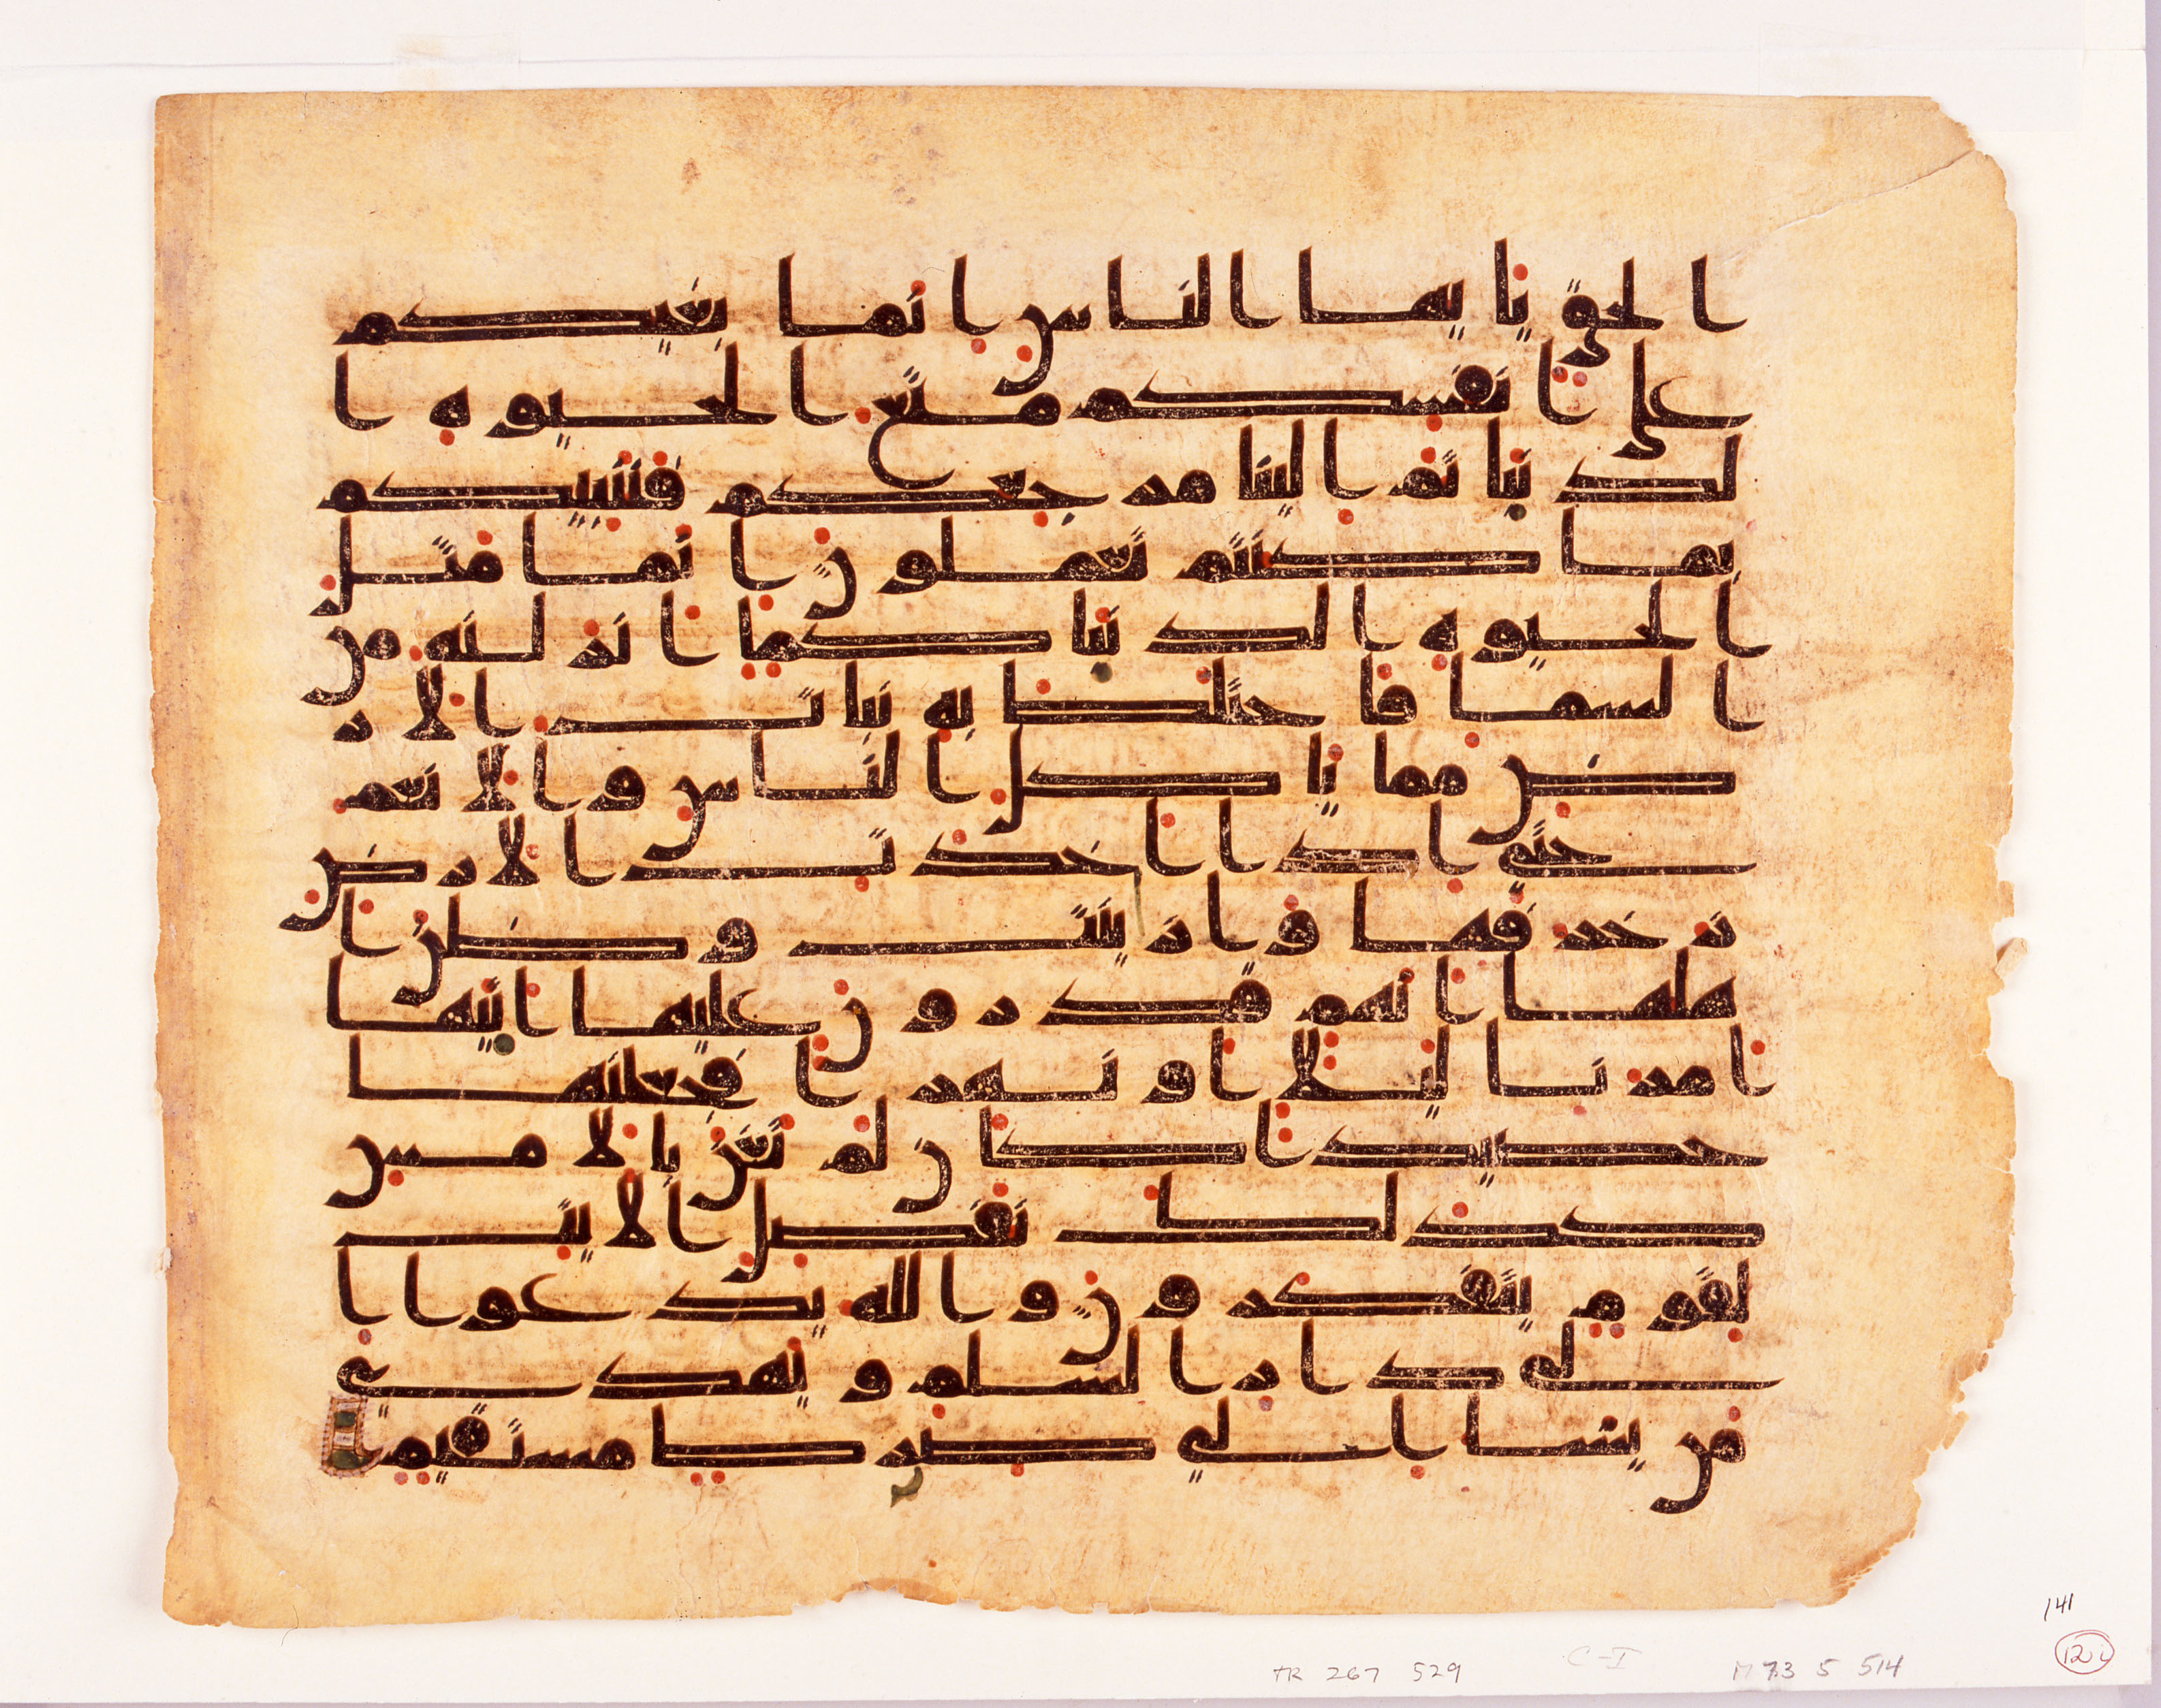 الحق يايها الناس انما بغيكم
على انفسكم متع الحيوه ا
لدنيا ثم الينا مرجعكم فننبيكم
بما كنتم تعملون انما مثل
الحيوه الدنيا كما انزلنه من
السما فاختلط به نبات الار
ض مما ياكل الناس والانعم
حتى اذا اخذت الارض
زخرفها وازينت وظن ا
هلها انهم قدرون عليها اتيها
امرنا ليلا او نهرا فجعلنها
حصيدا كان لم تغن بالامس
كذلك نفصل الايت
لقوم يتفكرون والله يدعوا ا
لى دار السلم ويهدي
من يشا الى صرط مستقيم
141
120
TR 267 529
C-I
M 73 5 514